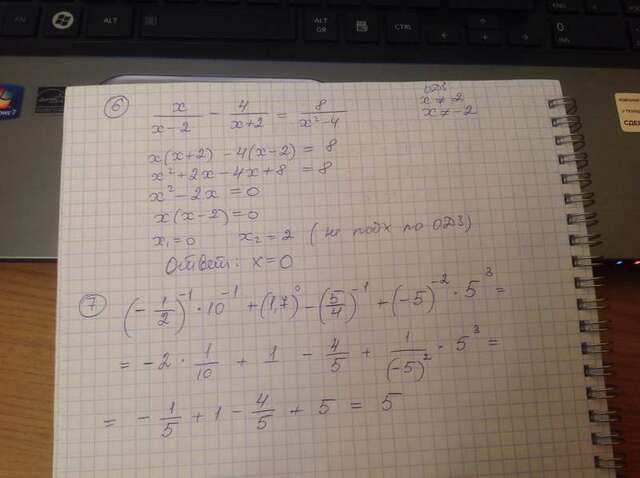 ALT
ALT GR
CTRL
0
ОДЗ
x ≠ 2
x ≠ -2
⑥ x/(x-2) - 4/(x+2) = 8/(x²-4)
x(x+2) - 4(x-2) = 8
x² + 2x - 4x + 8 = 8
x² - 2x = 0
x(x-2) = 0
x₁ = 0 x₂ = 2 (не подх по ОДЗ)
Ответ: x = 0
⑦ (-1/2)⁻¹ · 10⁻¹ + (1,7)⁰ - (5/4)⁻¹ + (-5)⁻² · 5³ =
= -2 · 1/10 + 1 - 4/5 + 1/(-5)² · 5³ =
= -1/5 + 1 - 4/5 + 5 = 5